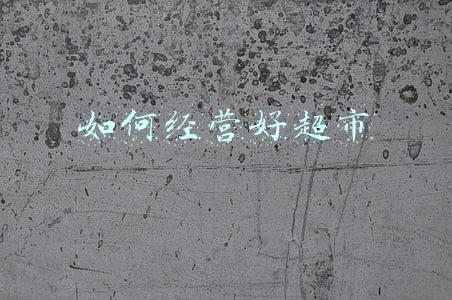 如何经营好超市